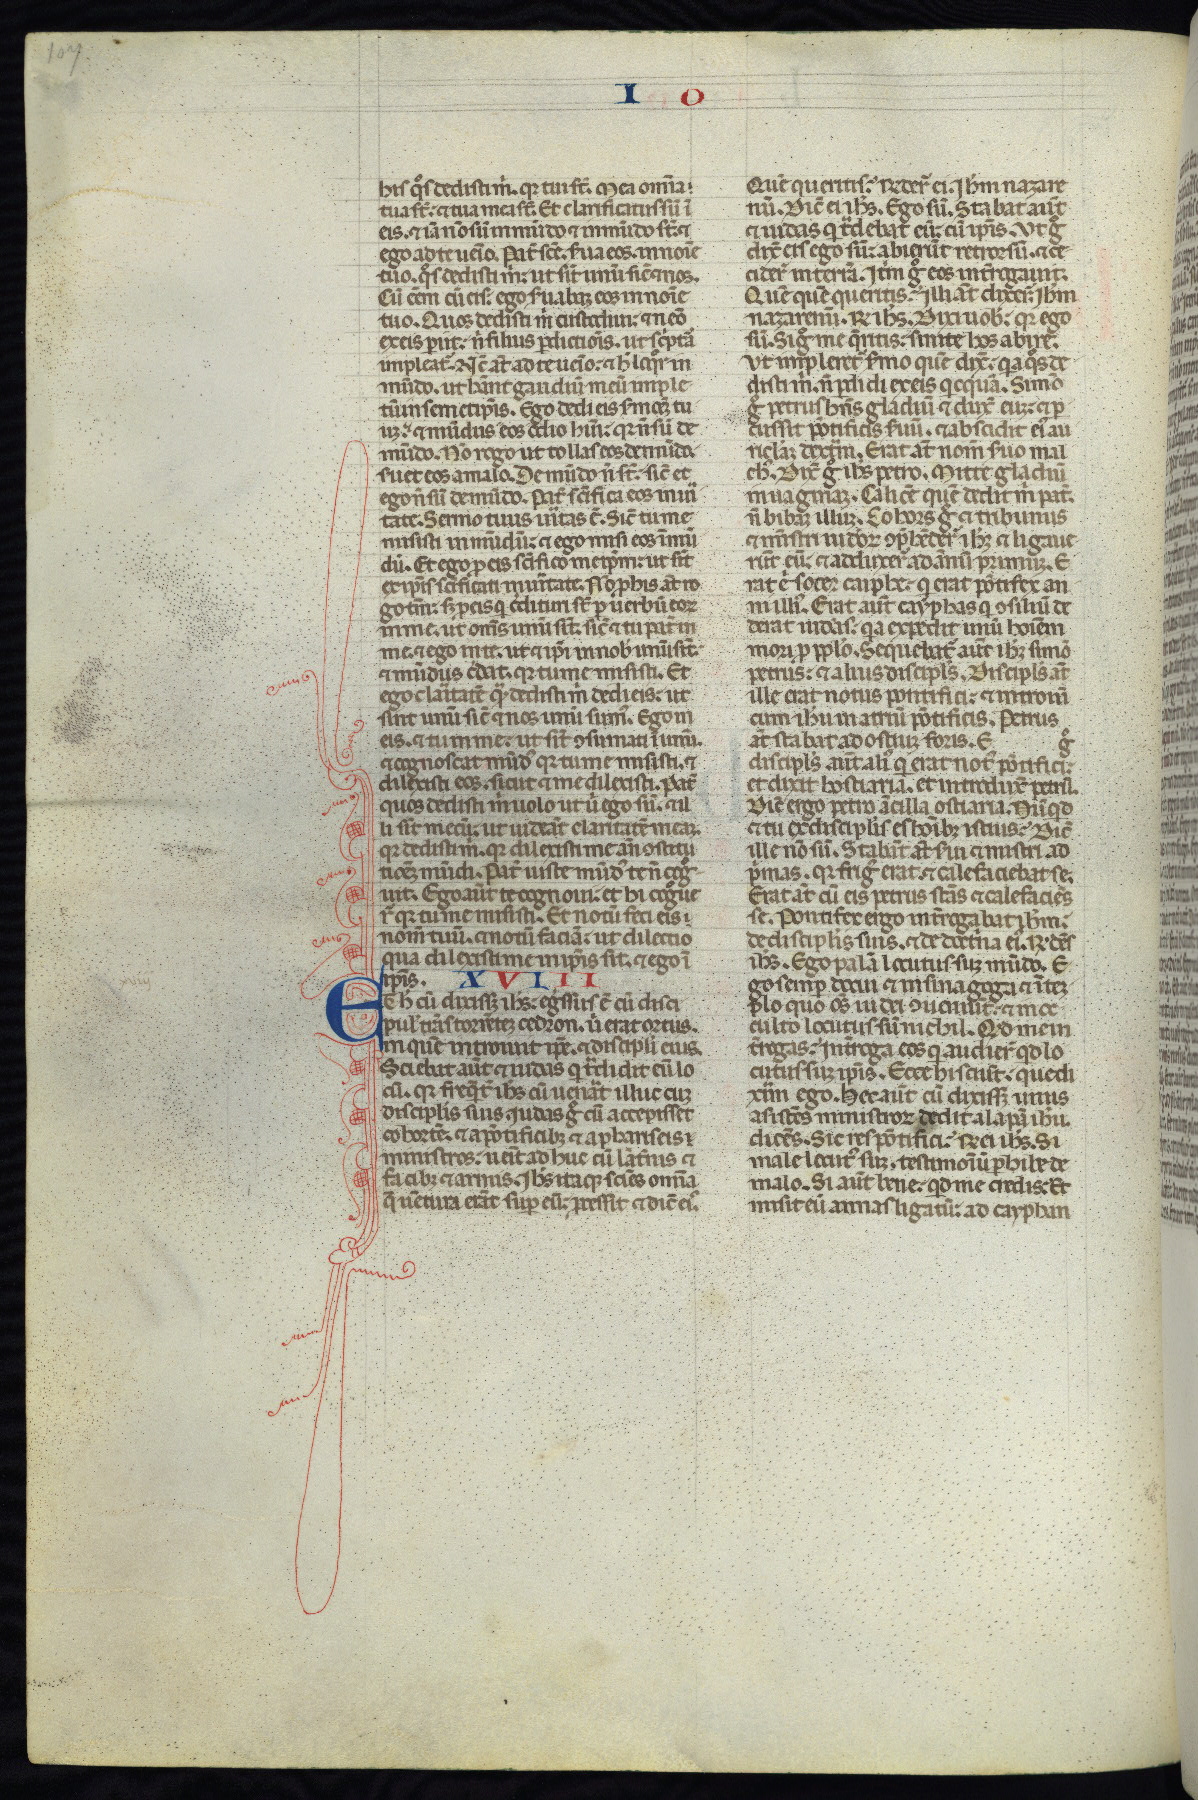 107
I O
his qͦs dedisti m̄. qꝛ tui st̄. Mea om̄ia
tua st̄: ⁊ tua mea st̄. Et clarificatus sū ī
eis. ⁊ iā nō sū in mūdo ⁊ in mūdo st̄. ⁊
ego ad te uēio. Pat̄ scē. ẜua eos. in noīe
tuo. qͦs dedisti m̄: ut sīt unū sic̄ ⁊ nos.
Cū eēm cū eis: ego ẜuabaꝫ eos in noīe
tuo. Quos dedisti m̄ custodiui: ⁊ nēo
ex eis ꝑiit: n̄ filius ꝑdictiōis. ut sc̄ptā
impleat̄. Nc̄ at̄ ad te uēio: ⁊ h̄ loqͬr in
mūdo. ut hānt gaudiū meū imple
tū in semetip̄is. Ego dedi eis ẜmoꝫ tu
uꝫ: ⁊ mūdus eos odio hūit: qꝛ n̄ sū de
mūdo. Nō rogo ut tollas eos de mūdo.
ẜuet eos a malo. De mūdo n̄ st̄: sic̄ et
ego n̄ sū de mūdo. Pat̄ sc̄ifica eos in uī
tate. Sermo tuus uītas ē. Sic̄ tu me
misisti in mūdū: ⁊ ego misi eos ī mū
dū. Et ego ꝓ eis sc̄ifico meip̄m: ut sīt
et ip̄i sc̄ificati in uītate. Nō ꝓ his at̄ ro
go tm̄: sꝫ ꝓ eis q̇ c̄dituri st̄ ꝑ uerbū eoꝝ
in me. ut om̄s unū sīt: sic̄ ⁊ tu pat̄ in
me. ⁊ ego in te. ut ⁊ ip̄i in nob̄ unū sīt:
⁊ mūdus c̄dat. qꝛ tu me misisti. Et
ego claritatē qͣ dedisti m̄ dedi eis: ut
sint unū sic̄ ⁊ nos unū sumꝰ. Ego in
eis. ⁊ tu in me: ut sīt ꝯsumati ī unū.
⁊ cognoscat mūdꝰ qꝛ tu me misisti. ⁊
dilexisti eos. sicut ⁊ me dilexisti. Pat̄
quos dedisti m̄ uolo ut ū ego sū. ⁊ il
li sīt mecū: ut uideāt claritatē meaꝫ.
qꝛ dedisti m̄. qꝛ dilexisti me an̄ ꝯstitu
tiōeꝫ mūdi. Pat̄ iuste mūdꝰ te n̄ cogͦ
uit. Ego aūt te cognoui. et hi cogͦue
r̄ qꝛ tu me misisti. Et notū feci eis
nom̄ tuū. ⁊ notū faciā: ut dilectio
qua dilexisti me in ip̄is sit. ⁊ ego ī
ip̄is. XVIII
Et h̄ cū dixissꝫ ihs̄: eg̃ssus ē cū disci
pul̄ trās torrēteꝫ cedron. ū erat ortus.
in quē introiuit ip̄e. ⁊ discipli eius.
Sciebat aūt ⁊ iudas q̇ t̃didit eū lo
cū. qꝛ freq̄t̄ ihs̄ cū uēiāt illuc cuꝫ
disciplis suis. Judas gͦ cū accepisset
cohortē. ⁊ a pōtificibꝫ ⁊ a phariseis
ministros: uēit ad huc cū latn̄is ⁊
facibꝫ ⁊ armis. Jhs̄ itaqꝫ sciēs om̄ia
q̄ uentura erāt suꝑ eū: ꝓcessit ⁊ dic̄ eiꝰ
Quē queritis: R̄der̄ ei. Jhm nazare
nū. Dic̄ ei ihs̄. Ego sū. Stabat aūt
⁊ iudas q̇ t̃debat eū: cū ip̄is. Vt gͦ
dix̄ eis ego sū: abierūt retrorsū. ⁊ ce
cider̄ in terrā. Iteꝝ gͦ eos intr̄rogauit.
Quē quē queritis: Illi at̄ dixer̄: Jhm
nazarenū. R̄ ihs̄. Dixi uob̄: qꝛ ego
sū. Si gͦ me q̄ritis: sinite hos abire.
Vt impleret̄ ẜmo quē dix̄: qa qͦs de
disti m̄. n̄ ꝑdidi ex eis qͣcꝗͣ. Simō
gͦ petrus hn̄s gladiū ⁊ duxit euꝫ: ⁊ ꝑ
cussit pōtificis ẜuū. ⁊ abscidit eiꝰ au
riclaꝫ dextr̄m. Erat at̄ nom̄ ẜuo mal
chꝰ. Dix̄ gͦ ihs̄ petro. Mitte gladiū
in uaginaꝫ. Calicē quē dedit m̄ pat̄.
n̄ bibaꝫ illuꝫ. Cohors gͦ ⁊ tribunus
⁊ mīstri iudōꝝ ꝯp̄hēder̄ ihꝫ ⁊ ligaue
rūt eū: ⁊ adduxer̄ ad annā primuꝫ. E
rat ē socer cayphe: q̇ erat pōtifex an
ni illiꝰ. Erat aūt cayphas q̇ ꝯsiliū de
derat iudeis: qa expedit unū hoīem
mori ꝓ pplo. Sequebat̄ aūt ihꝫ simō
petrus: ⁊ alius discipls̄. Discipls̄ at̄
ille erat notus pontifici: ⁊ introiit
cum ihu in atriū pōtificis. Petrus
at̄ stabat ad ostiuꝫ foris. E gͦ
discipls̄ aūt aliꝰ q̇ erat notꝰ pōtifici:
et dixit hostiariā. et introduxit petrū.
Dic̄ ergo petro ācilla ostiaria. Nūqd
⁊ tu ex disciplis es hoībꝫ istius: Dic̄
ille nō sū. Stabāt at̄ ẜui ⁊ mīstri ad
p̄mas. qꝛ frigꝰ erat: ⁊ calefaciebat se.
Erat at̄ cū eis petrus stās ⁊ calefaciēs
se. Pontifex ergo intr̄rogabat ihm:
de disciplis suis. ⁊ de doctina eiꝰ. R̄det̄
ihs̄. Ego palā locutus suꝫ mūdo. E
go semꝑ docui ⁊ in sinagoga ⁊ ī teꝫ
plo quo oēs iudei ꝯueniūt: ⁊ in oc
culto locutus sū nichil. Qd me in
t̄rogas: Intr̄roga eos q̇ audier̄ qd lo
cutus suꝫ ip̄is. Ecce hi sciūt: que di
xim ego. Hec aūt cū dixissꝫ unus
asistēs ministroꝝ dedit alapā ihu.
dicēs. Sic res pōtifici: R̄ ei ihs̄. Si
male locutꝰ suꝫ. testimoniū ꝑhibe de
malo. Si aūt bene: qd me cedis: Et
misit eū annas ligatū: ad cayphan